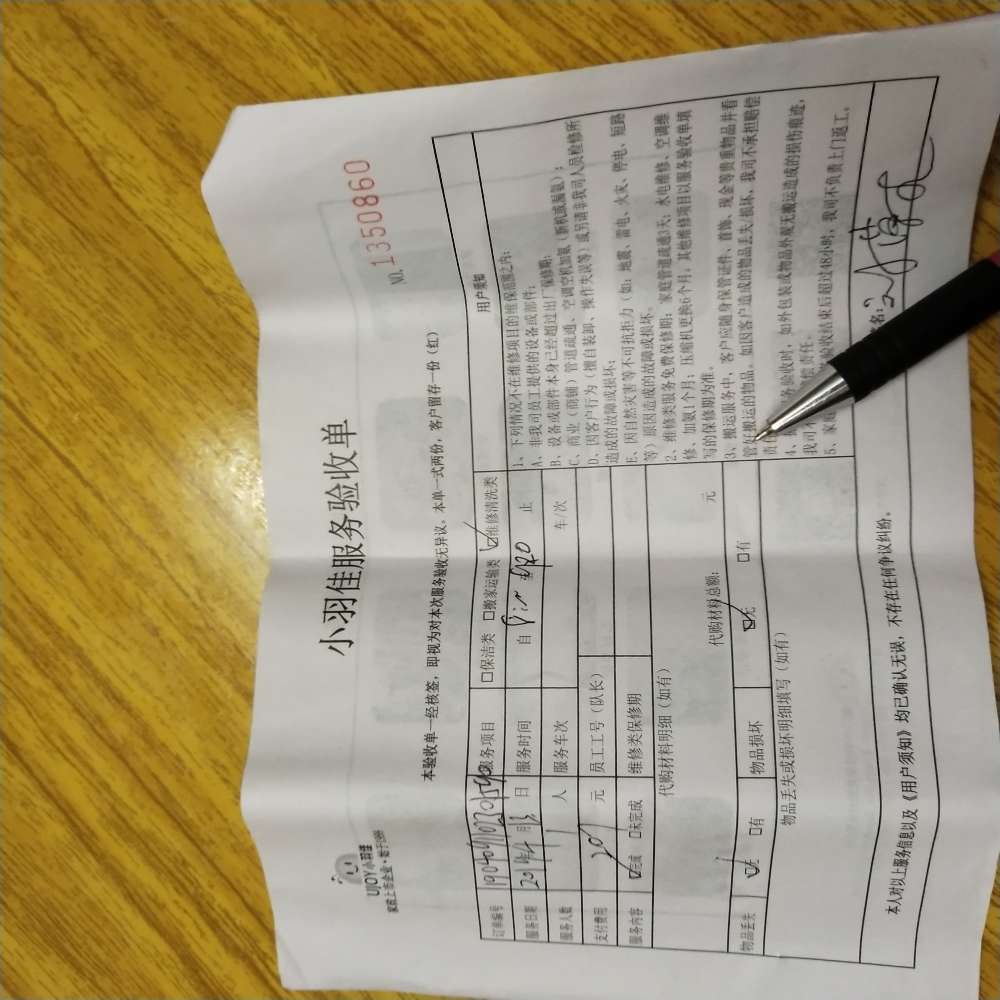 UJOY小羽佳
家政上市企业·始于1999
小羽佳服务验收单
NO. 1350860
本验收单一经核签，即视为对本次服务验收无异议。本单一式两份，客户留存一份（红）
订单编号
服务项目 □保洁类 □搬家运输类 ☑维修清洗类
服务日期 年4月13日 服务时间 自 止
服务人数 1人 服务车次 车/次
支付费用 元 员工工号（队长）
服务内容 ☑完成 □未完成 维修类保修期
代购材料明细（如有）
代购材料总额： 元
物品丢失 ☑无 □有 物品损坏 ☑无 □有
物品丢失或损坏明细填写（如有）
用户须知
1、下列情况不在维修项目的维保范围之内：
A、非我司员工提供的设备或部件；
B、设备或部件本身已经超过出厂保修期；
C、商业（商铺）管道疏通、空调空机加氨（新机或漏氨）；
D、因客户行为（擅自装卸、操作失误等）或另请非我司人员检修所
造成的故障或损坏；
E、因自然灾害等不可抗拒力（如：地震、雷电、火灾、停电、短路
等）原因造成的故障或损坏。
2、维修类服务免费保修期：家庭管道疏通3天；水电维修、空调维
修、加氨1个月；压缩机更换6个月，其他维修项目以服务验收单填
写的保修期为准。
3、搬运服务中，客户应随身保管证件、首饰、现金等贵重物品并看
管好搬运的物品。如因客户造成的物品丢失/损坏，我司不承担赔偿
责
4、搬 务验收时，如外包装或物品外观无搬运造成的损伤痕迹，
我司不 偿责任。
5、家庭 验收结束后超过48小时，我司不负责上门返工。
本人对以上服务信息以及《用户须知》均已确认无误，不存在任何争议纠纷。
名：